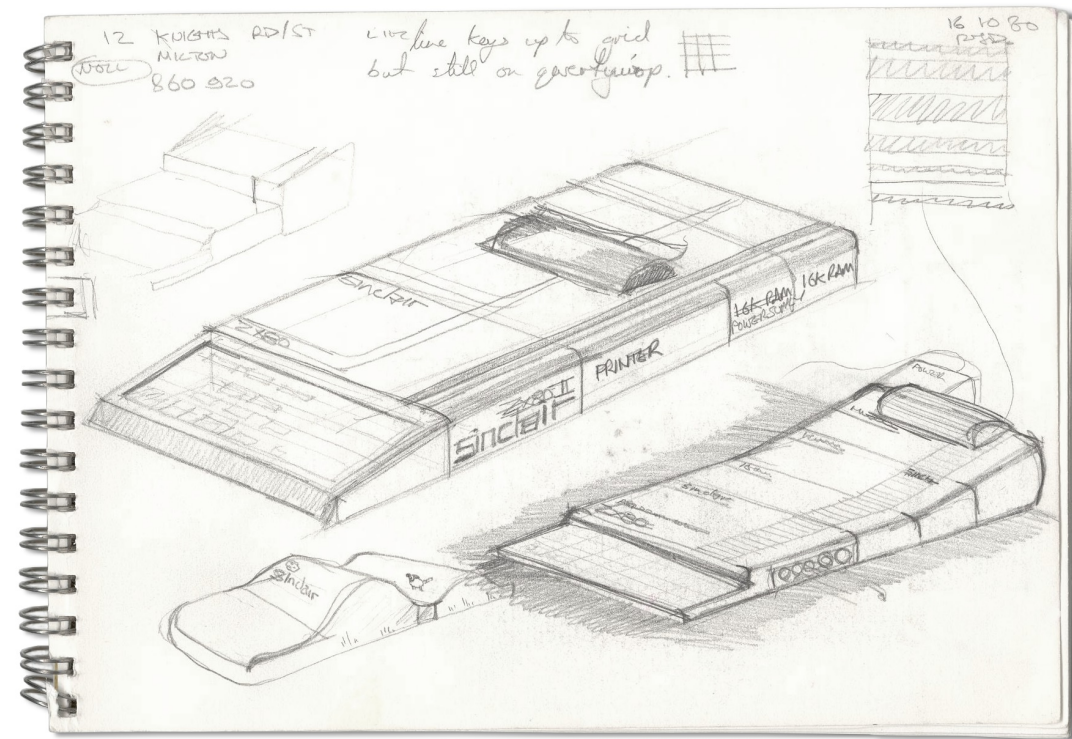 12 KNIGHTS RD/ST
MILTON
860 920
line keys up to grid
but still on qwertyuiop.
16 10 80
sinclair
ZX80
ZX80 II
sinclair
PRINTER
16K RAM
POWER SUPPLY
16K RAM
POWER
sinclair
sinclair
ZX80
sinclair